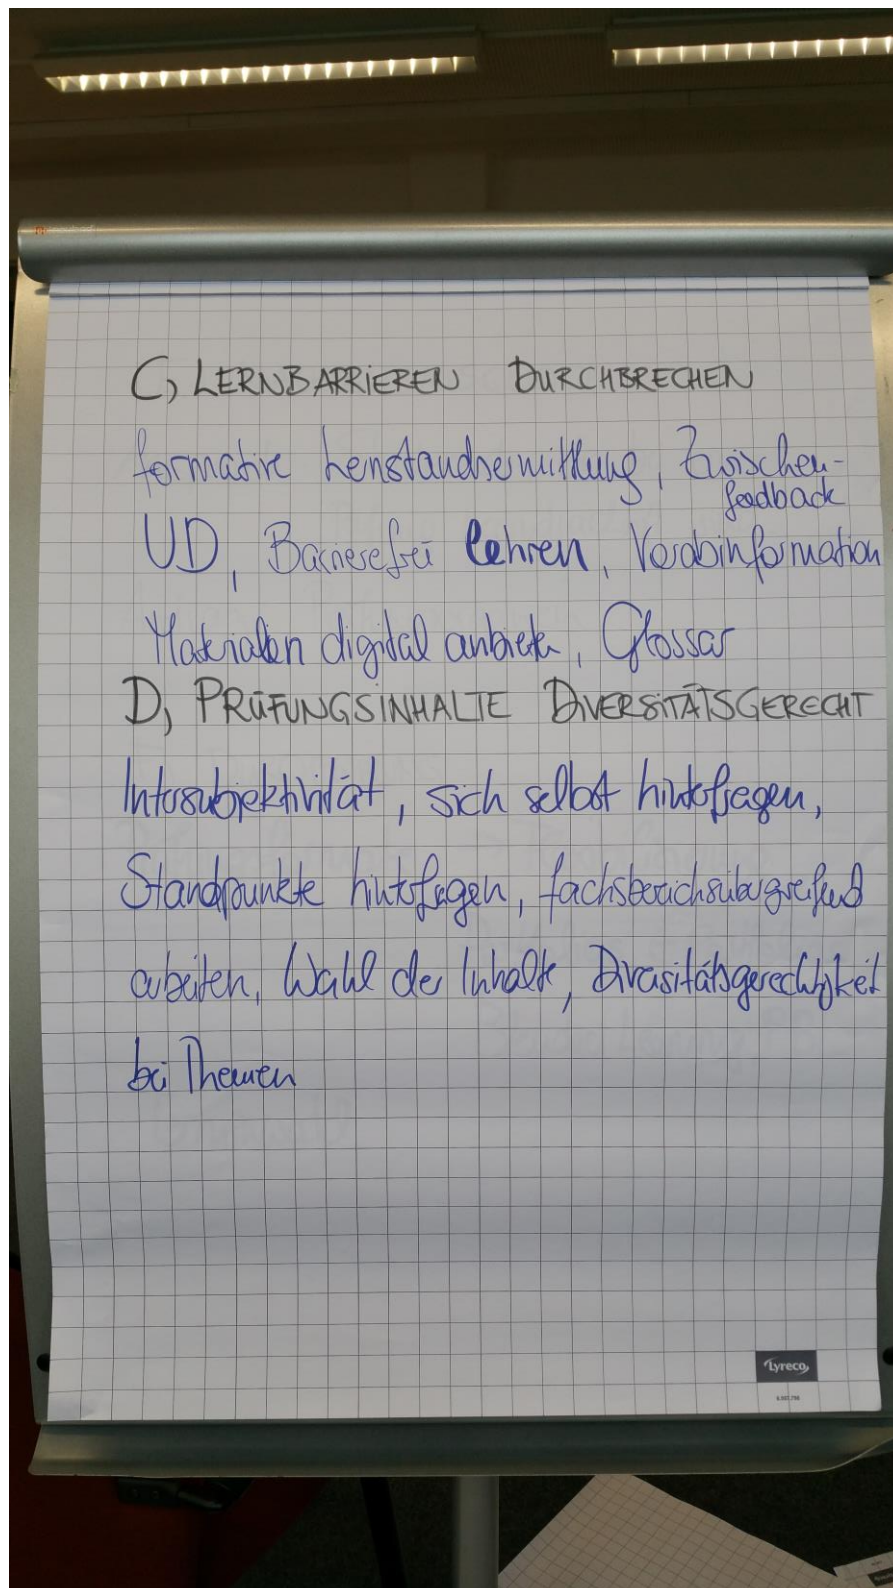 C) LERNBARRIEREN DURCHBRECHEN
formative Lernstandsermittlung, Zwischen-
feedback
UD, Barrierefrei lehren, Vorabinformation
Materialien digital anbieten, Glossar
D) PRÜFUNGSINHALTE DIVERSITÄTSGERECHT
Intersubjektivität, sich selbst hinterfragen,
Standpunkte hinterfragen, fachsbereichsübergreifend
arbeiten, Wahl der Inhalte, Diversitätsgerechtigkeit
bei Themen
Lyreco